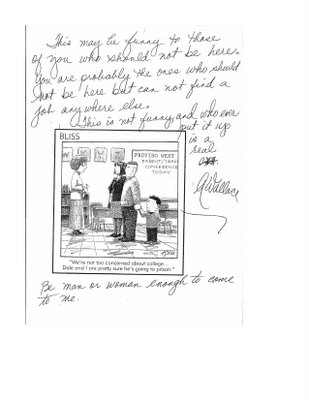 This may be funny to those
of you who should not be here.
you are probably the ones who should
not be here but can not find a
job anywhere else.
This is not funny and who ever
put it up
is a
real
A Wallace
BLISS
PROVISO WEST
PARENT/TEACH
CONFERENCE
TODAY
"We're not too concerned about college...
Dale and I are pretty sure he's going to prison."
Be man or woman enough to come
to me.